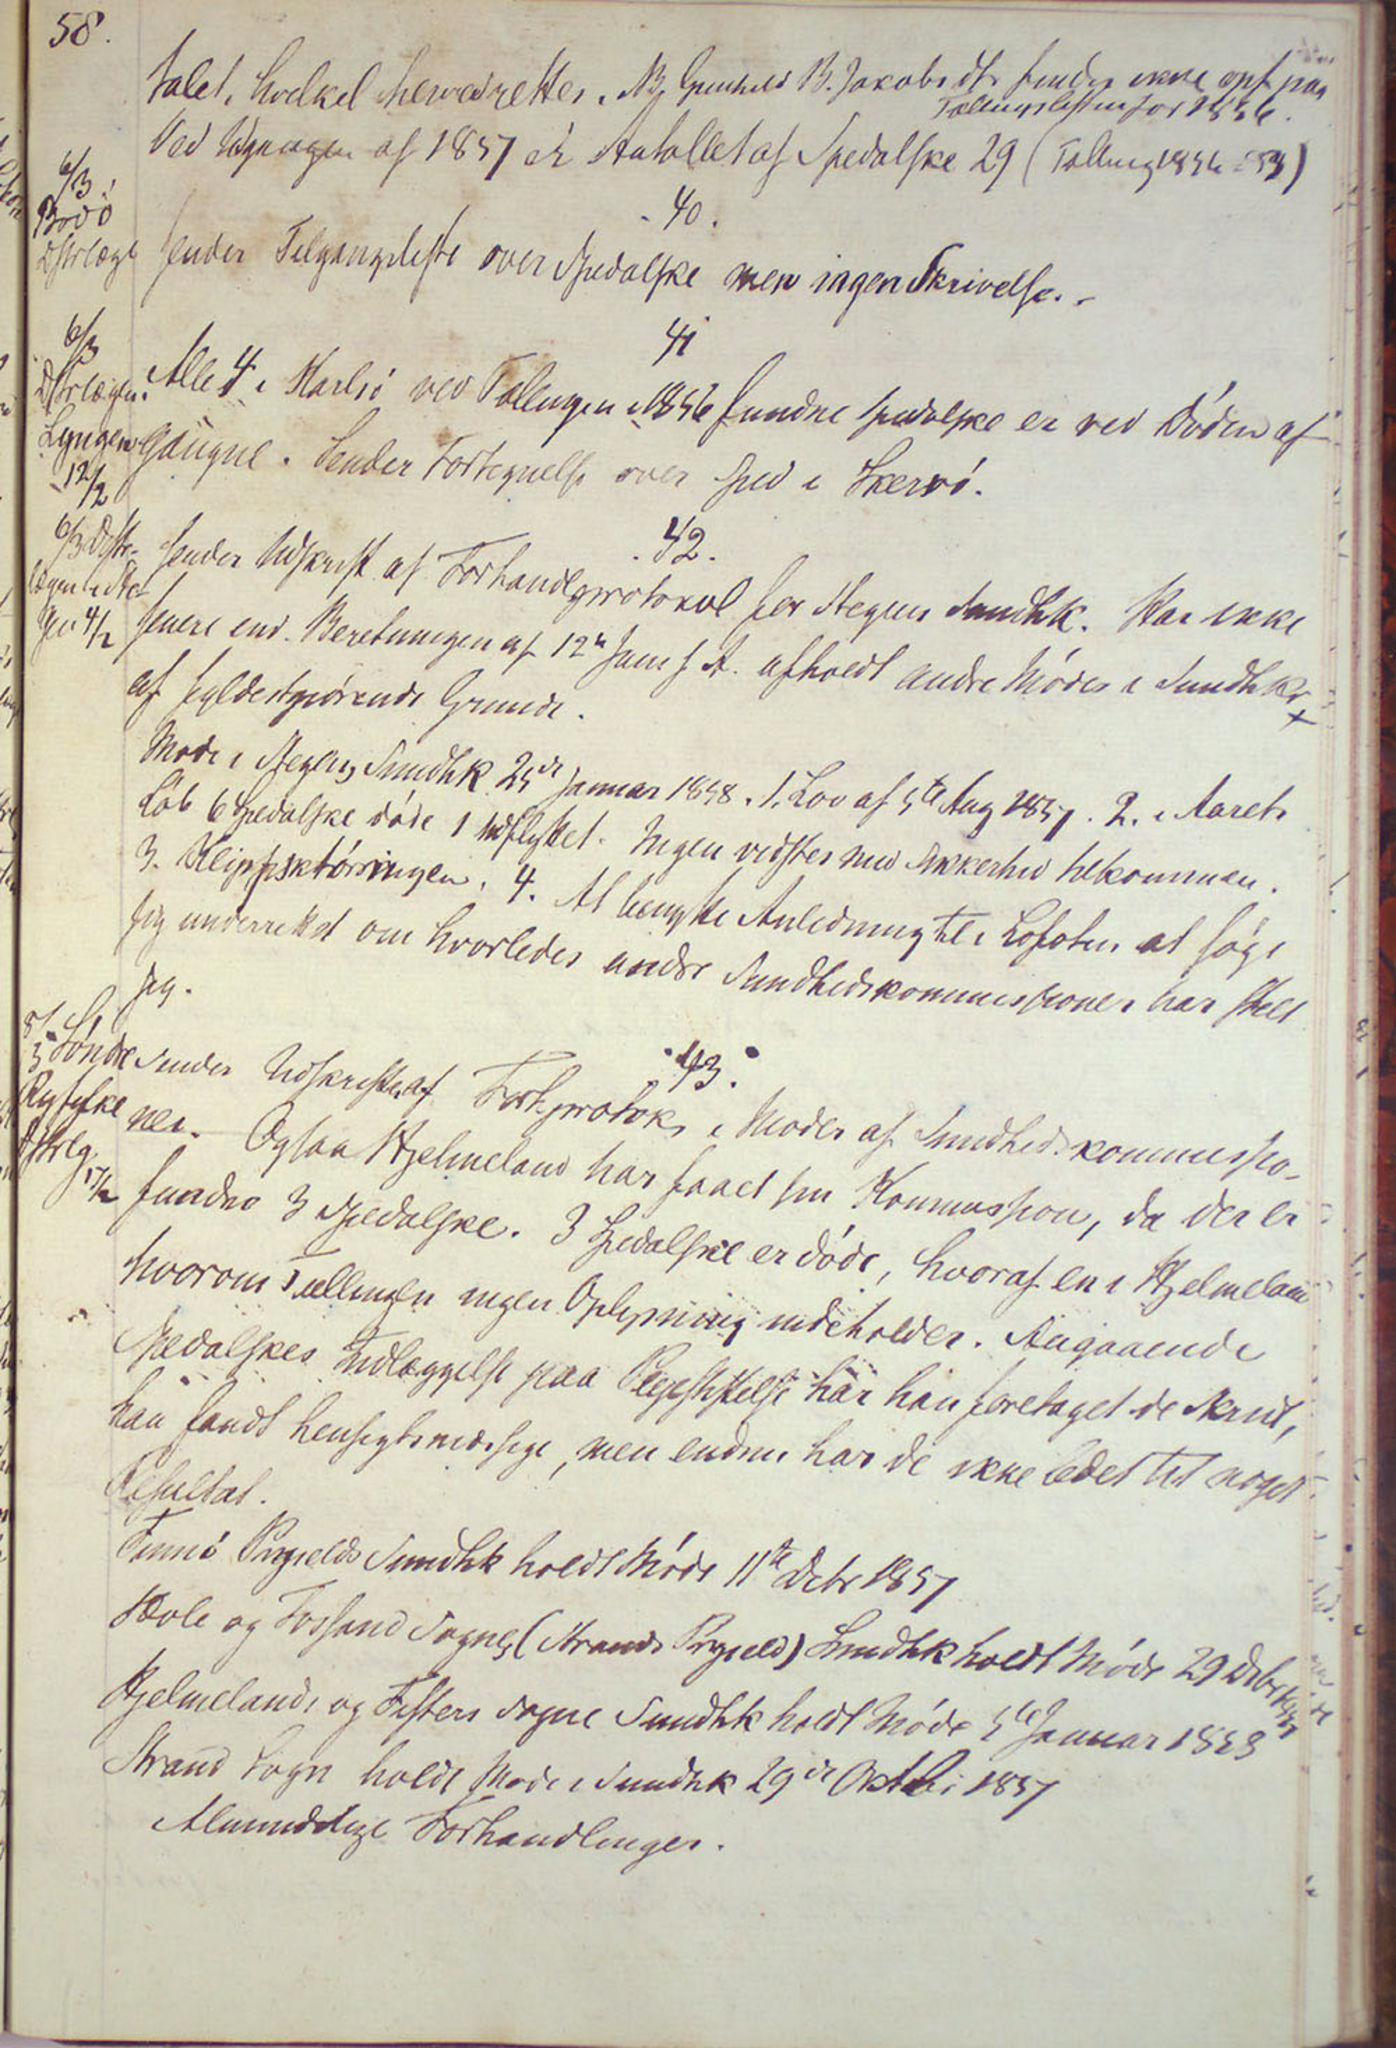 58.
talet, hvilket herved rettes. NB. Gunhild B. Jakobsdtr findes ikke opf paa
Tællingslisten for 1856.
Ved Udgangen af 1857 er Antallet af Spedalske 29 (Tælling 1856 = 33)
6/3
Bodö
Dstrlæge
40.
sender Tilgangsliste over Spedalske men ingen Skrivelse.
6/3
Dstrlægen
Lyngen
12/2
41
Alle 4 i Karlsö ved Tællingen i 1856 fundne spedalske er ved Döden af
gaaet. Sender Fortegnelse over sped i Skervö.
6/3 Dstr-
lægen i Ste
gen 4/2
42.
sender Udskrift af Forhandlprotokol for Stegens Sundhk. Har ikke
senere end Beretningen af 12te Jan f A. afholdt andre Möder i Sundhkr
af fyldestgjörende Grunde.
Möde i Stegens Sundhk 25de Januar 1858. 1. Lov af 5te Aug 1857. 2. i Aarets
Löb 6 Spedalske döde 1 udflyttet. Ingen vidstes med Sikkerhed tilkommen.
3. Klipfisktörringen. 4. At benytte Anledning til i Lofoten at söge
sig underrettet om hvorledes andre Sundhedskommissioner har stelt
sig.
8/3 Söndre
Ryfylke
Dstrlg
17/2
43.
sender Udskrifter af Forhprotok i Möder af Sundhedskommissio-
ner. Ogsaa Hjelmeland har faaet sin Kommission, da der er
fundne 3 Spedalske. 3 Spedalske er döde, hvoraf en i Hjelmeland
hvorom Tællingen ingen Oplysning indeholder. Angaaende
Spedalskes Indlæggelse paa Pleiestiftelse har han foretaget de Skridt,
han fandt hensigtsmæssige, men endnu har de ikke ledet til noget
Resultat.
Finnö Prgjelds Sundhk holdt Möde 11te Debr 1857
Höle og Fossand Sogne (Strands Prgjeld) Sundhk holdt Möde 29 Debr 1857
Hjelmelands og Fisters Sogne Sundhk holdt Möde 5te Januar 1858
Strand Sogn holdt Möde i Sundhk 29de Oktbr 1857
Almindelige Forhandlinger.